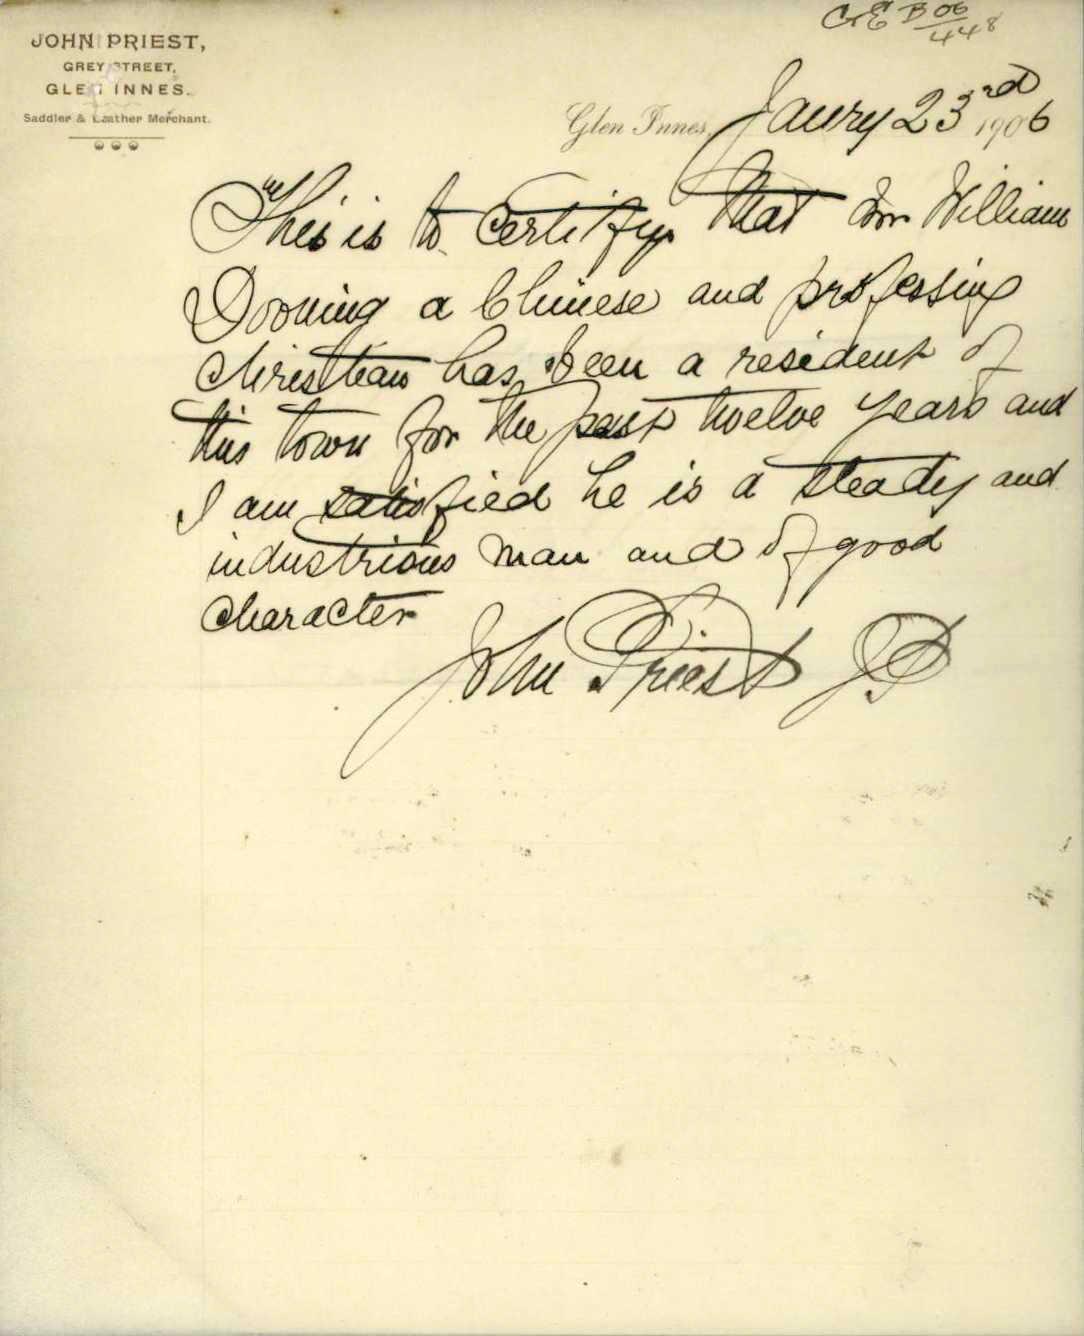 C&E B 06/448
JOHN PRIEST,
GREY STREET,
GLEN INNES.
Saddler & Leather Merchant.
Glen Innes, Jaury 23rd 1906
This is to certify that Wm William
Dooning a Chinese and professing
christian has been a resident of
this town for the past twelve years and
I am satisfied he is a steady and
industrious man and of good
character
John Priest JP